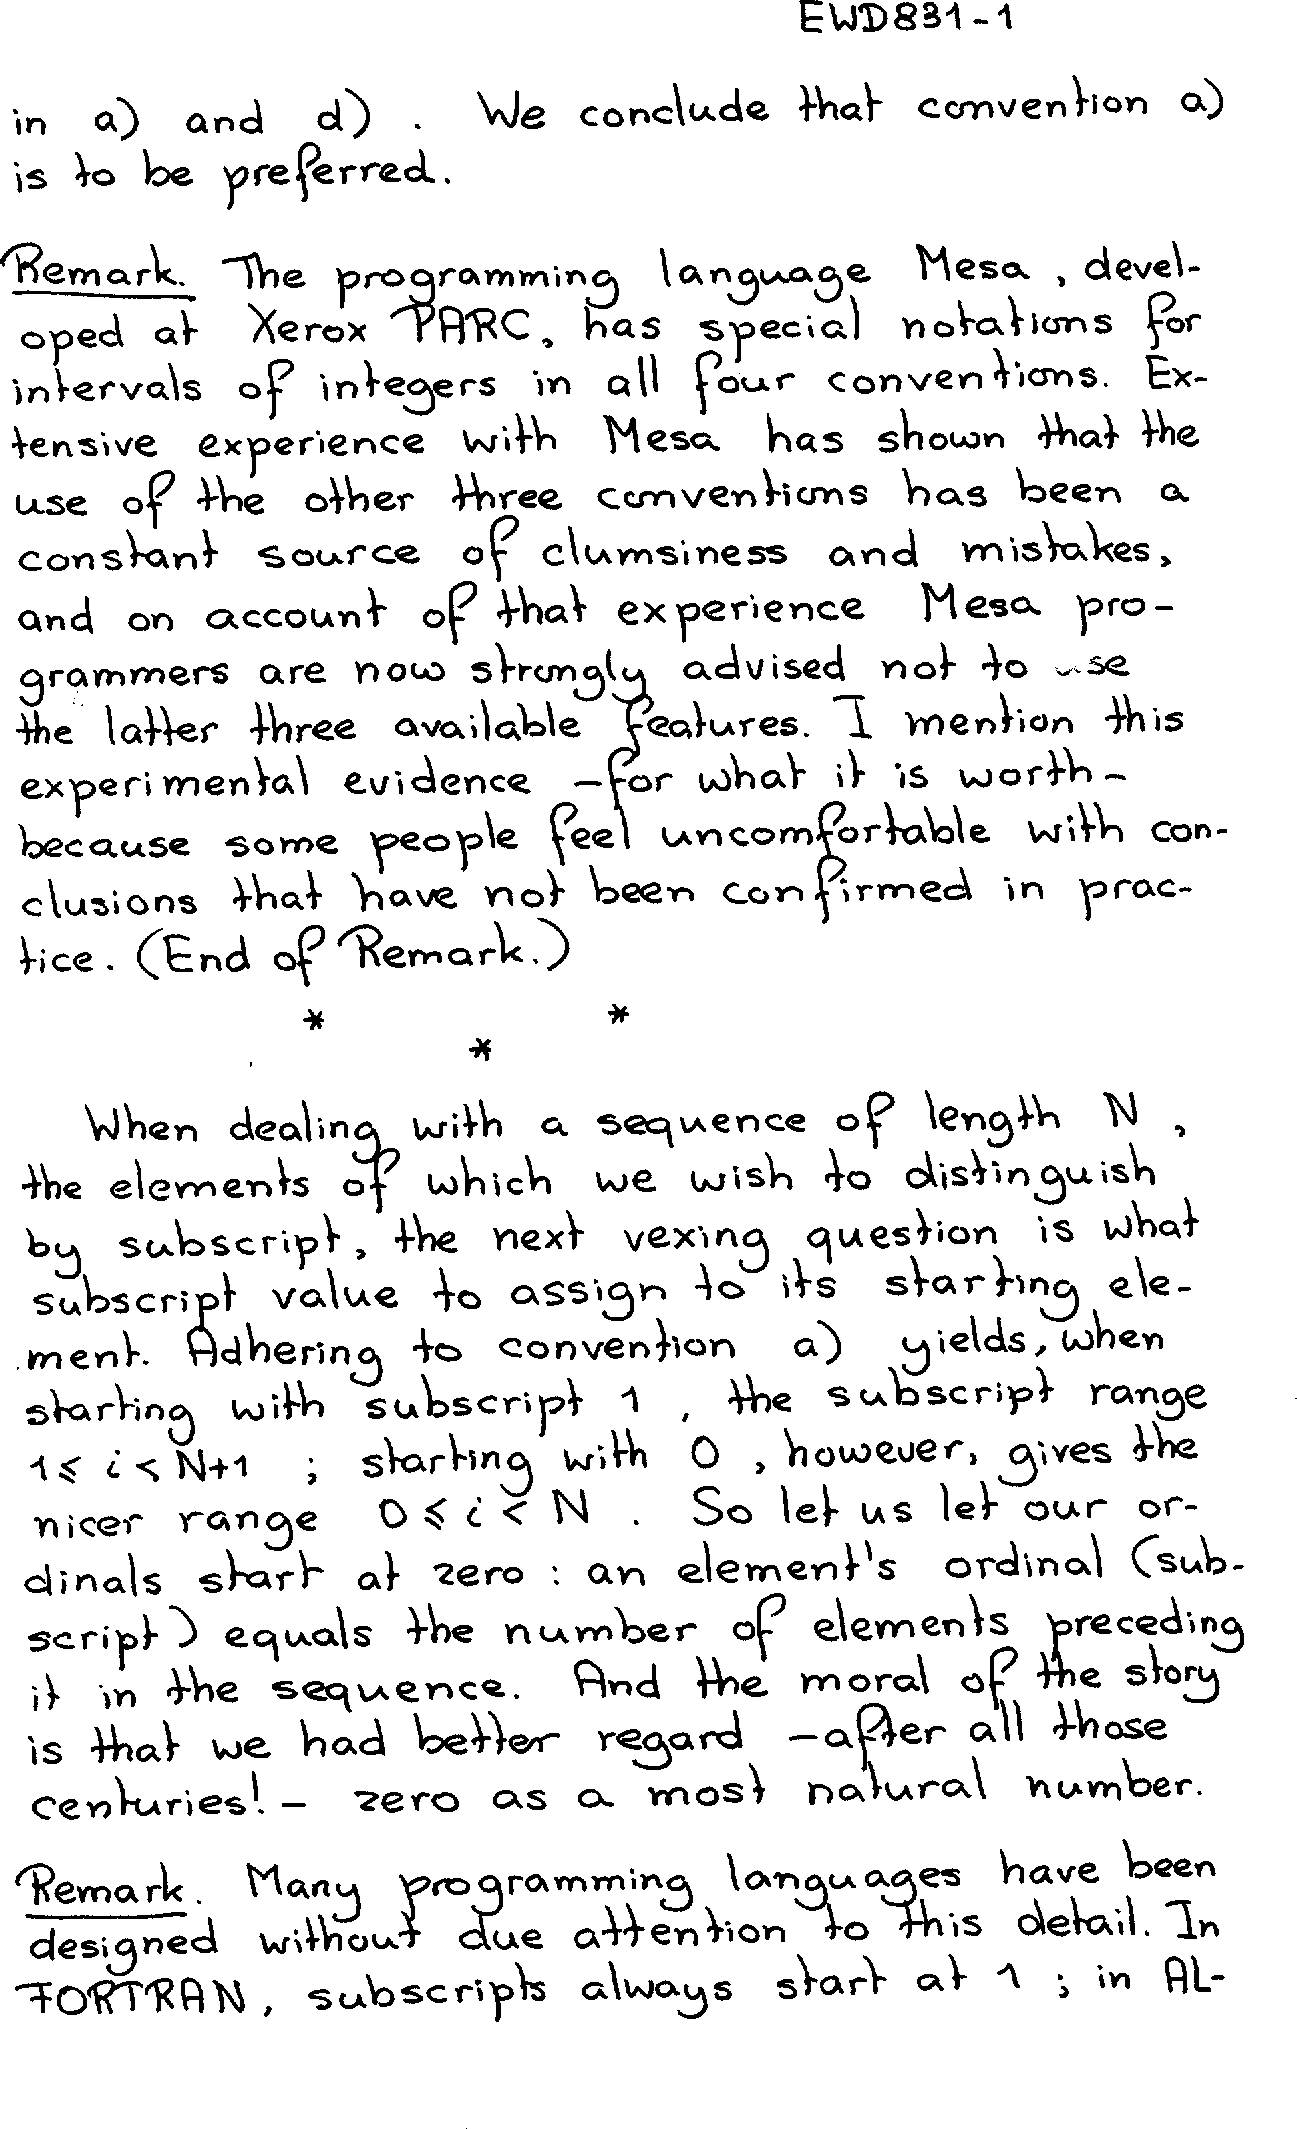 EWD831-1
in a) and d) . We conclude that convention a)
is to be preferred.
Remark. The programming language Mesa, devel-
oped at Xerox PARC, has special notations for
intervals of integers in all four conventions. Ex-
tensive experience with Mesa has shown that the
use of the other three conventions has been a
constant source of clumsiness and mistakes,
and on account of that experience Mesa pro-
grammers are now strongly advised not to use
the latter three available features. I mention this
experimental evidence -for what it is worth-
because some people feel uncomfortable with con-
clusions that have not been confirmed in prac-
tice. (End of Remark.)
* *
*
When dealing with a sequence of length N ,
the elements of which we wish to distinguish
by subscript, the next vexing question is what
subscript value to assign to its starting ele-
ment. Adhering to convention a) yields, when
starting with subscript 1 , the subscript range
1≤ i < N+1 ; starting with 0 , however, gives the
nicer range 0 ≤ i < N . So let us let our or-
dinals start at zero : an element's ordinal (sub-
script) equals the number of elements preceding
it in the sequence. And the moral of the story
is that we had better regard -after all those
centuries!- zero as a most natural number.
Remark. Many programming languages have been
designed without due attention to this detail. In
FORTRAN, subscripts always start at 1 ; in AL-